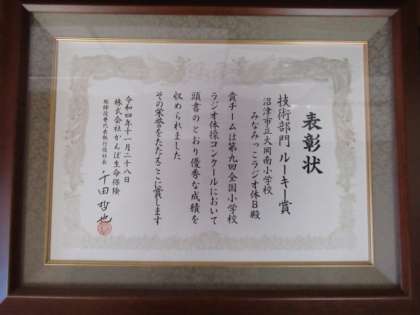 表彰状
技術部門 ルーキー賞
沼津市立大岡南小学校
みなみっこラジオ体B殿
貴チームは第九回全国小学校
ラジオ体操コンクールにおいて
頭書のとおり優秀な成績を
収められました
その栄誉をたたえここに賞します
令和四年十一月二十八日
株式会社かんぽ生命保険
取締役兼代表執行役社長 千田哲也